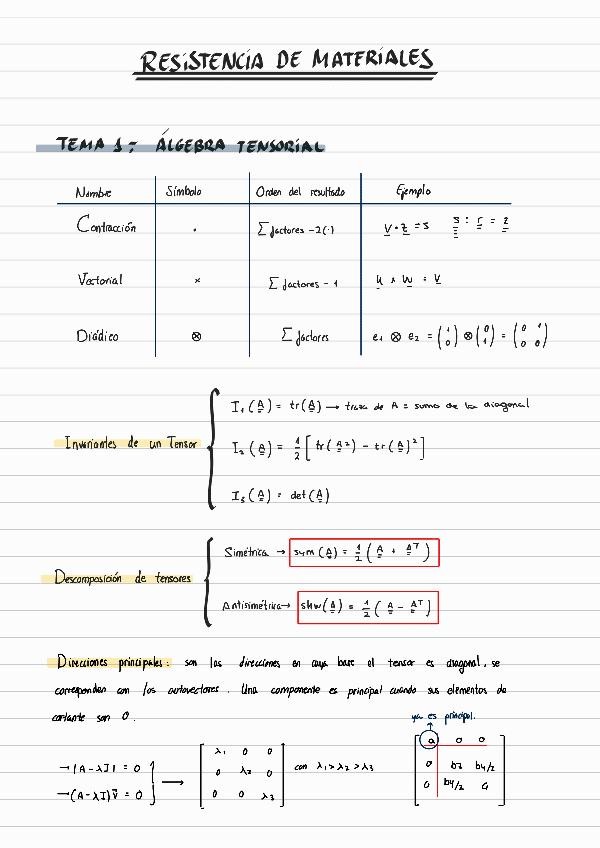 RESISTENCIA DE MATERIALES
TEMA 1: ÁLGEBRA TENSORIAL
Nombre Símbolo Orden del resultado Ejemplo
Contracción · Σ factores - 2(·) v · z = s
Vectorial × Σ factores - 1 u × w = v
Diádico ⊗ Σ factores e1 ⊗ e2 = (1 0) ⊗ (0 1) = (0 1 0 0)
Invariantes de un Tensor
I1 (A) = tr(A) → traza de A = suma de la diagonal
I2 (A) = 1/2 [tr(A²) - tr(A)²]
I3 (A) = det(A)
Descomposición de tensores
Simétrica → sym(A) = 1/2 (A + Aᵀ)
Antisimétrica → skw(A) = 1/2 (A - Aᵀ)
Direcciones principales: son las direcciones en cuya base el tensor es diagonal, se
corresponden con los autovectores. Una componente es principal cuando sus elementos de
cortante son 0.
ya es principal.
→ |A-λI| = 0
→ (A-λI) v = 0
→
λ1 0 0
0 λ2 0
0 0 λ3
con λ1 > λ2 > λ3
a 0 0
0 b3 b4/2
0 b4/2 a